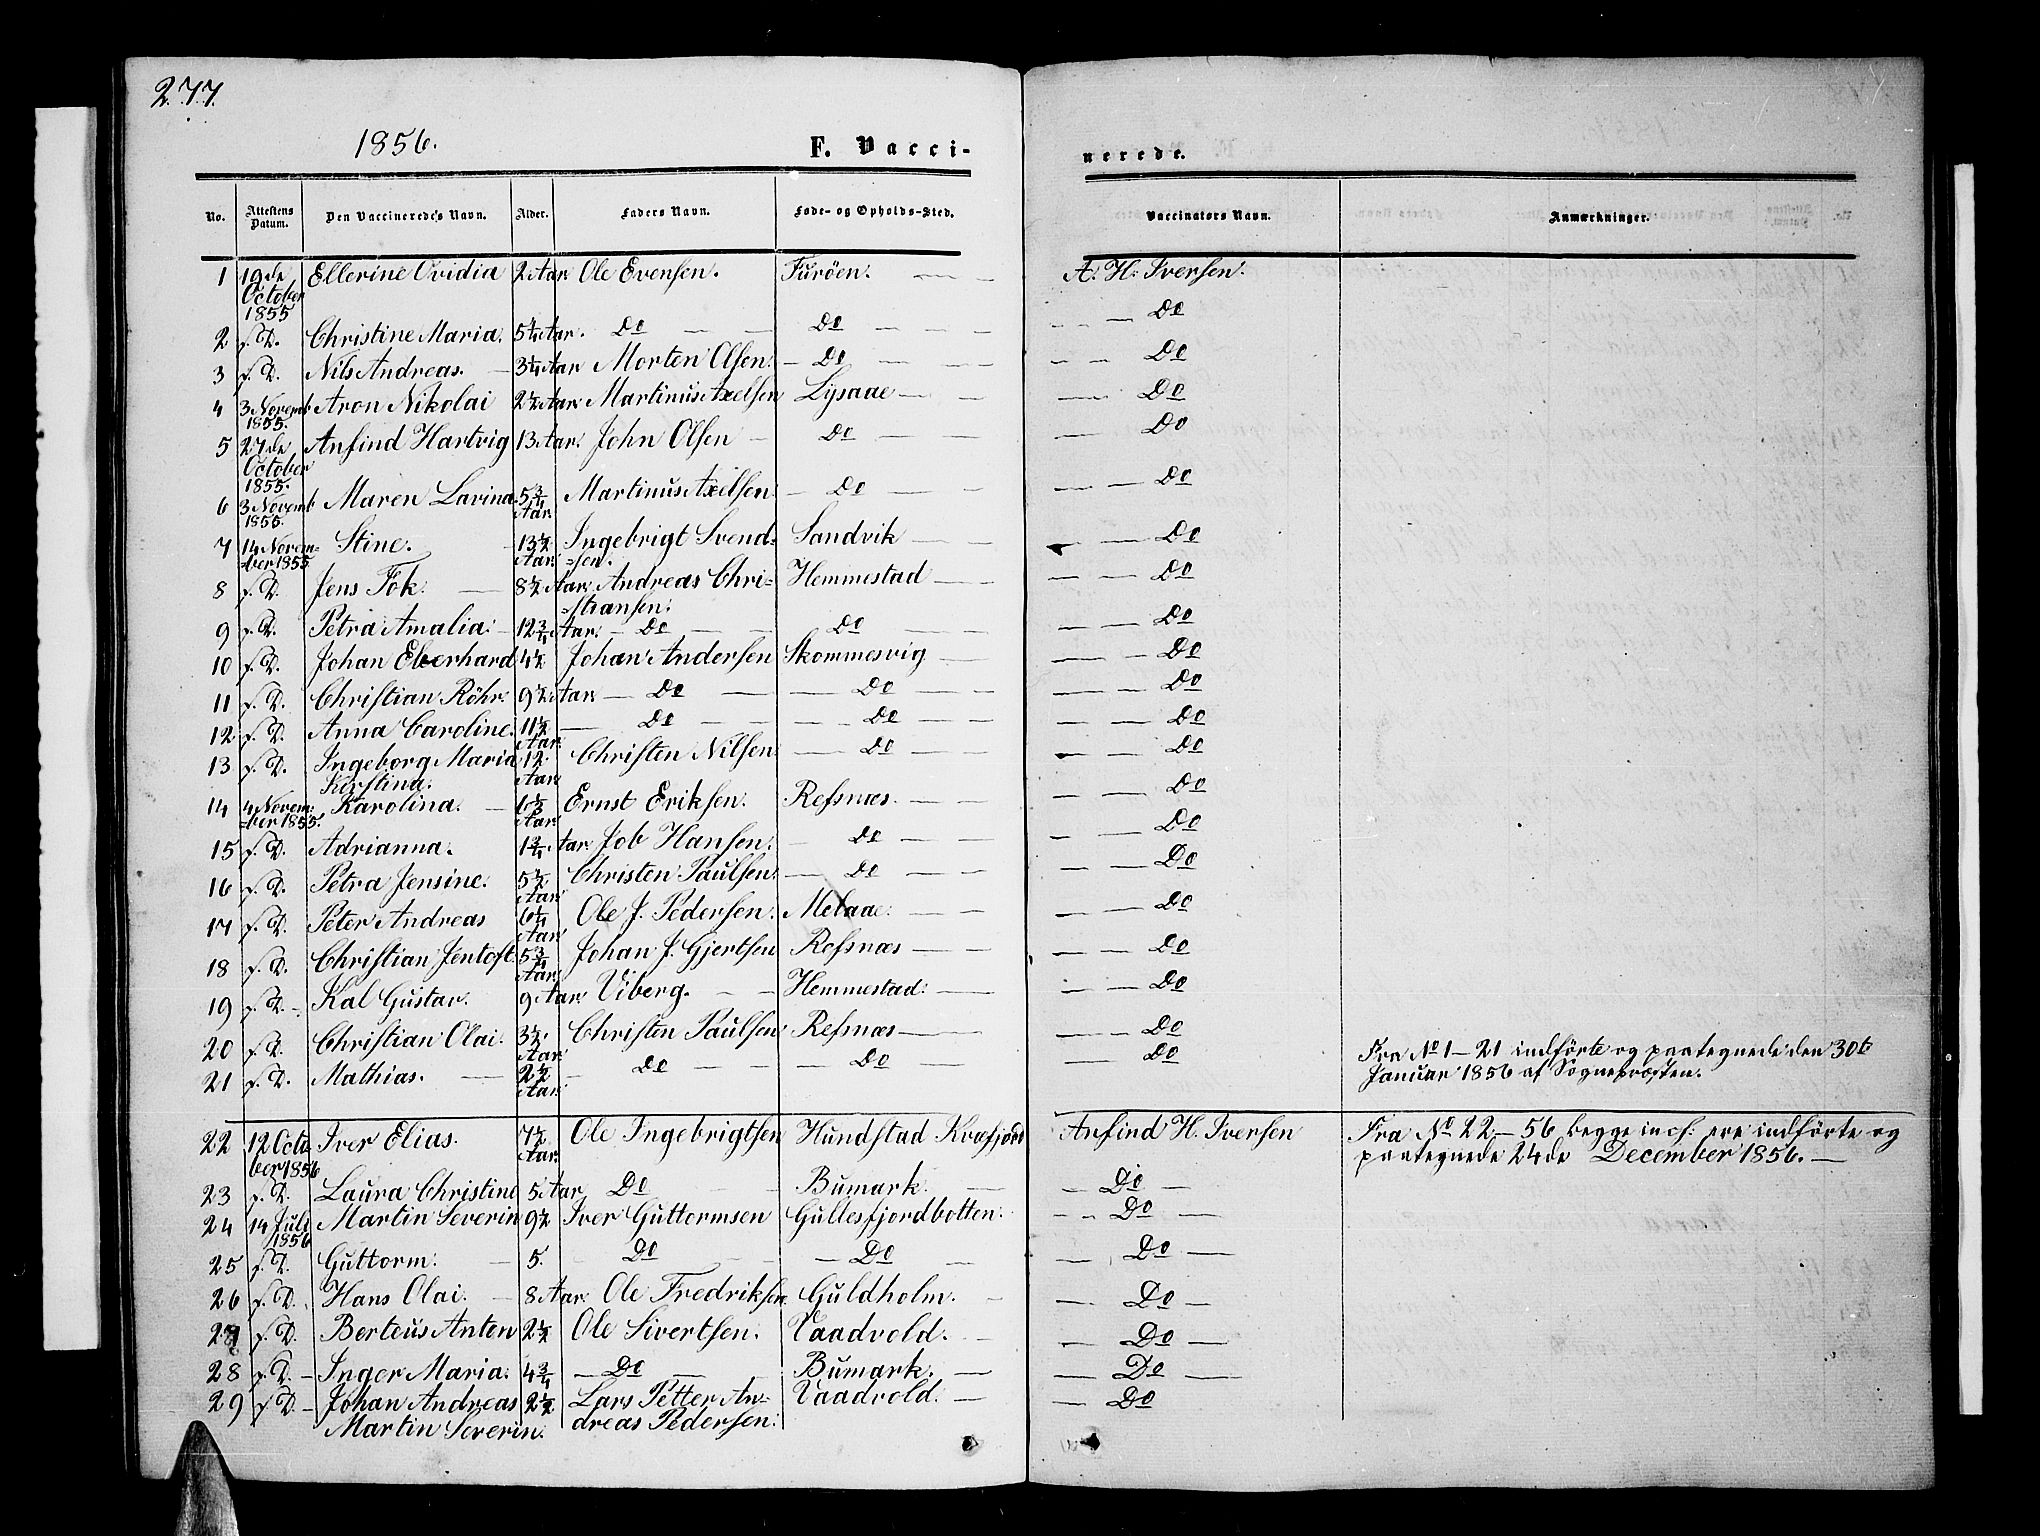 277.
1856.
F. Vacci-
nerede.
No. Attestens Datum. Den Vaccineredes Navn. Alder. Faders Navn. Føde- og Opholds-Sted. Vaccinators Navn. Anmærkninger.
1 19de October 1855 Ellerine Ovidia 2 Aar Ole Evensen. Furöen. A. H. Iversen.
2 f. D. Christine Maria. 5¼ Aar. Do Do Do
3 f. D. Nils Andreas. 3¼ Aar Morten Olsen. Do Do
4 3 Novemb 1855. Aron Nikolai 2½ Aar Martinus Axelsen Lysaae Do
5 27de October 1855. Anfind Hartvig 13 Aar. John Olsen Do Do
6 3 Novemb 1855. Maren Lavina 5¾ Aar Martinus Axelsen Do Do
7 14 Novem=
=ber 1855 Stine. 13½ Aar. Ingebrigt Svend=
=sen. Sandvik Do
8 f. D. Jens Fok. 8½ Aar. Andreas Chri=
=stiansen. Hemmestad Do
9 f. D. Petra Amalia. 12¾ Aar. Do Do Do
10 f. D. Johan Eberhard 4½ Johan Andersen Skommesvig Do
11 f. D. Christian Röhr. 9½ Aar Do Do Do
12 f. D. Anna Caroline. 11½ Aar. Do Do Do
13 f. D. Ingeborg Maria
Kirstina. 12 Aar Christen Nilsen Do Do
14 4 Novem=
=ber 1855. Karolina. Aar. Ernst Eriksen. Refsnæs. Do
15 f. D. Adrianna. 1¾ Aar Job Hansen. Do Do
16 f. D. Petra Jensine. 5½ Aar Christen Paulsen. Do Do
17 f. D. Peter Andreas 6¼ Aar Ole J. Pedersen. Melaae. Do
18 f. D. Christian Jentoft. 5¾ Aar. Johan J. Gjertsen Refsnæs Do
19 f. D. Kal Gustav. 9 Aar Viberg. Hemmestad. Do
20 f. D. Christian Olai. 3½ Aar Christen Paulsen Refsnæs Do
21 f. D. Mathias. 2½ Aar. Do Do Do Fra No 1-21 indförte og paategnede den 30te
Januar 1856 af Sognepræsten.
22 12 Octo
ber 1856 Iver Elias. 7½ Aar. Ole Ingebrigtsen Hundstad Kvæfjord Anfind H. Iversen Fra No 22-56 begge incl. ere indförte og
paategnede 24de December 1856.
23 f. D. Laura Christine 5 Aar Do Bumark. Do
24 14 Juli 1856 Martin Severin 9½ Iver Guttormsen Gullesfjordbotten. Do
25 f. D. Guttorm. 5. Do Do Do
26 f. D. Hans Olai. 8 Aar Ole Fredriksen Guldholm. Do
27 f. D. Berteus Anton 2½ Ole Sivertsen. Vaadvold. Do
28 f. D. Inger Maria. 4¾ Do Bumark. Do
29 f. D. Johan Andreas
Martin Severin. 2½ Lars Petter An=
dreas Pedersen. Vaadvold. Do